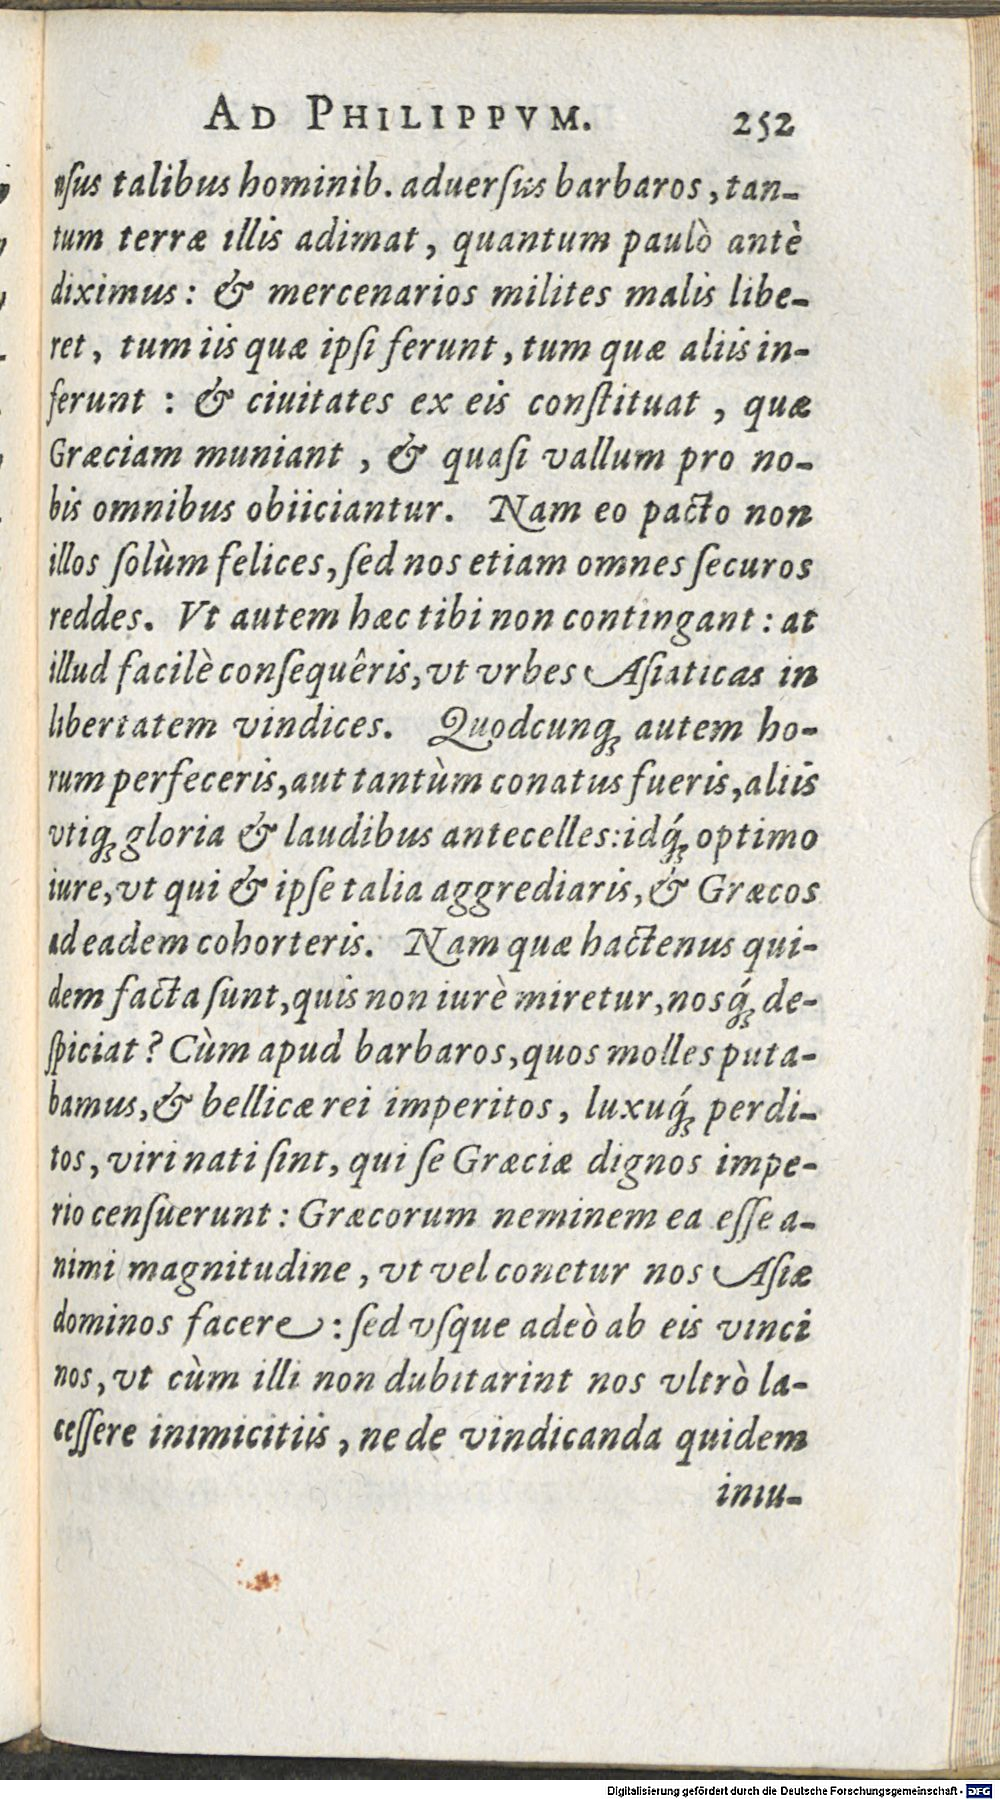 AD PHILIPPVM. 252
nſus talibus hominib. aduerſus barbaros, tan-
tum terræ illis adimat, quantum paulò antè
diximus: & mercenarios milites malis libe-
ret, tum iis quæ ipſi ferunt, tum quæ aliis in-
ferunt : & ciuitates ex eis conſtituat, quæ
Græciam muniant, & quaſi vallum pro no-
bis omnibus obiiciantur. Nam eo pacto non
illos ſolùm felices, ſed nos etiam omnes ſecuros
reddes. Vt autem hæc tibi non contingant: at
illud facilè conſequêris, vt vrbes Aſiaticas in
libertatem vindices. Quodcunq; autem ho-
rum perfeceris, aut tantùm conatus fueris, aliis
vtiq; gloria & laudibus antecelles: idq́; optimo
iure, vt qui & ipſe talia aggrediaris, & Græcos
ad eadem cohorteris. Nam quæ hactenus qui-
dem facta ſunt, quis non iurè miretur, nosq́; de-
ſpiciat? Cùm apud barbaros, quos molles puta-
bamus, & bellicæ rei imperitos, luxuq́; perdi-
tos, viri nati ſint, qui ſe Græciæ dignos impe-
rio cenſuerunt: Græcorum neminem ea eſſe a-
nimi magnitudine, vt vel conetur nos Aſiæ
dominos facere: ſed vſque adeò ab eis vinci
nos, vt cùm illi non dubitarint nos vltrò la-
ceſſere inimicitiis, ne de vindicanda quidem
iniu-
Digitalisierung gefördert durch die Deutsche Forschungsgemeinschaft - DFG